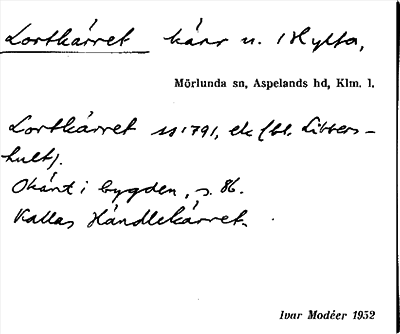 Lortkärret kärr n. 1 Hylta,
Mörlunda sn, Aspelands hd, Klm. l.
Lortkärret ss 1791, ek (bl. Libbers-
hult).
Okänt i bygden, s. 86.
Kallas Händlekärret.
Ivar Modéer 1952